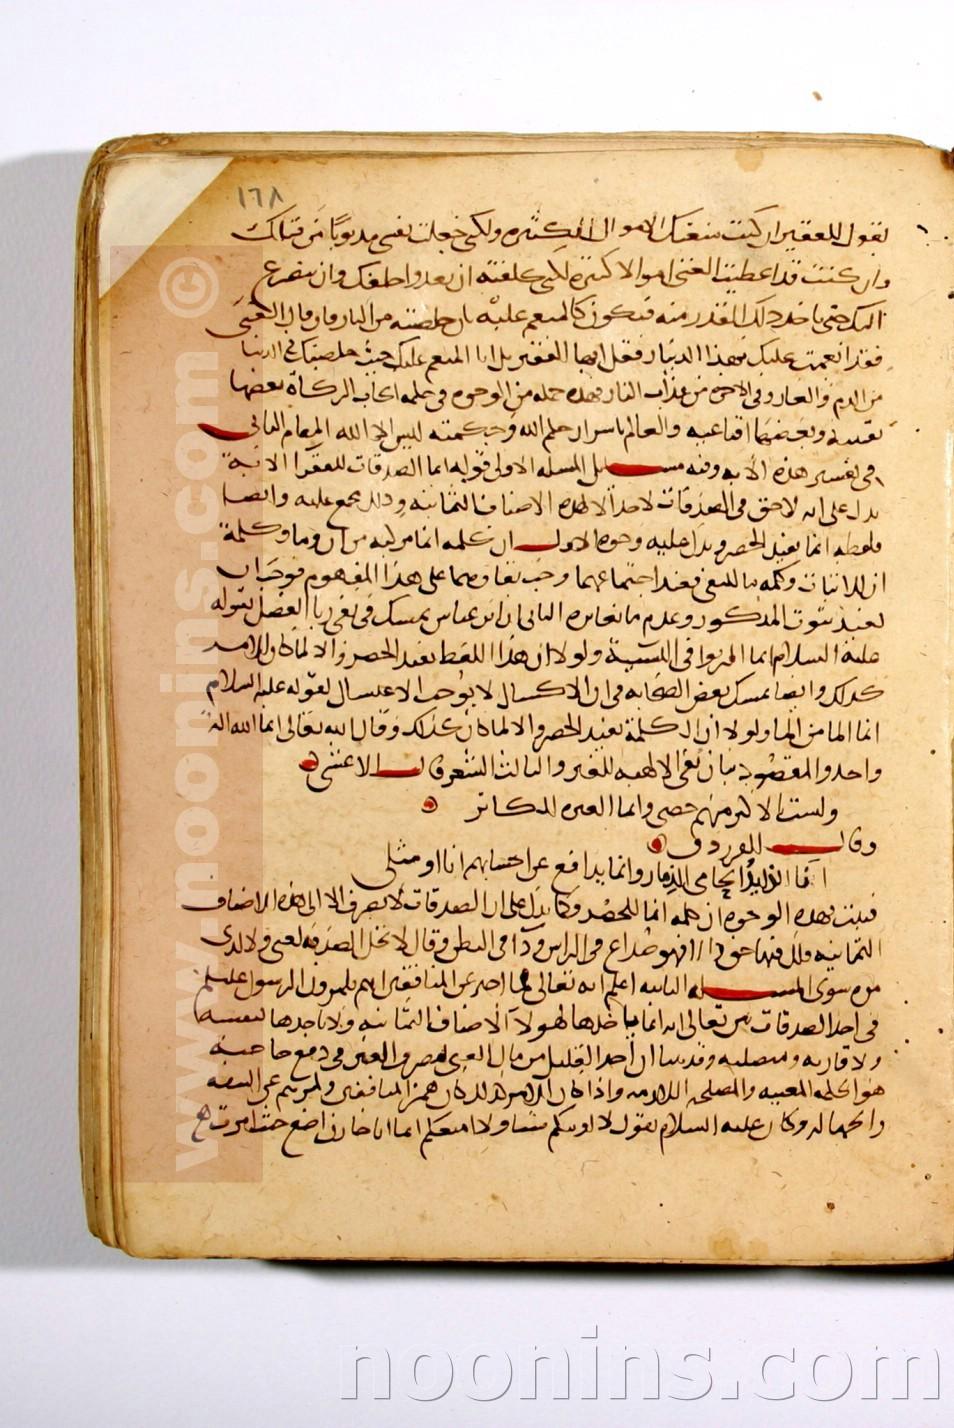 ١٦٨
يقول للفقير ان كنت منعتك الاموال الكثيرة ولكني جعلت نفسي مديونا من قبلك
وان كنت قد اعطيت الغني اموالا كثيرة لكني كلفته ان يعدو خلفك وان يتضرع
اليك حتى ياخذ ذلك القدر منه فتكون كالمنعم عليه بان خلصته من النار فان قال الغني
قد انعمت عليك بهذا الدينار فقل ايها الفقير بل انا المنعم عليك حيث خلصتك في الدنيا
من الذم والعار وفي الاخرة من عذاب النار فهذه جملة من الوجوه في حكمة ايجاب الزكاة بعضها
يقينية وبعضها اقناعية والعالم باسرار حكم الله وحكمته ليس الا الله المقام الثاني
في تفسير هذه الاية وفيه مسايل المسلة الاولى قوله انما الصدقات للفقرا الاية
يدل على انه لا حق في الصدقات لاحد الا لهذه الاصناف الثمانية وذلك مجمع عليه وايضا
فلفظة انما يفيد الحصر ويدل عليه وجوه الاول ان كلمة انما مركبة من ان وما وكلمة
ان للاثبات وكلمة ما للنفي فعند اجتماعهما وجب بقاوهما على هذا المفهوم فوجب ان
يفيد ثبوت المذكور وعدم ما يغايره الثاني ان ابن عباس تمسك في نفي ربا الفضل بقوله
عليه السلام انما الربوا في النسية ولولا ان هذا اللفظ يفيد الحصر والا لما كان الامر
كذلك وايضا تمسك بعض الصحابة في ان الاكسال لا يوجب الاغتسال لقوله عليه السلام
انما الما من الما ولولا ان الكلمة تفيد الحصر والا لما كان كذلك وقال الله تعالى انما الله اله
واحد والمقصود بيان نفي الالهية للغير والثالث الشعر قال الاعشى
ولست بالاكثر منهم حصى وانما العزة للكاثر
وقال الفرزدق
انا الذايد الحامي الذمار وانما يدافع عن احسابهم انا او مثلي
فثبت بهذه الوجوه ان كلمة انما للحصر ومما يدل على ان الصدقات لا تصرف الا الى هذه الاصناف
الثمانية فلك فيها حق والا فهو صداع في الراس ودا في البطن وقال لا تحل الصدقة لغني ولا لذي
مرة سوي المسلة الثانية اعلم انه تعالى لما اخبر عن المنافقين انهم يلمزون الرسول عليه السلام
في اخذ الصدقات بين تعالى انه انما ياخذها لهولا الاصناف الثمانية ولا ياخذها لنفسه
ولا قاربه ومتصليه وقد بينا ان اخذ القليل من مال الغني ليصرف الى الفقير في دفع حاجته
هو الحكمة المعينة والمصلحة اللازمة واذا كان الامر كذلك كان همز المنافقين ولمزهم عين السفه
والجهالة وكان عليه السلام يقول لا اوتيكم شيا ولا امنعكم انما انا خازن اضع حيث امرت
www.noonins.com ©
noonins.com